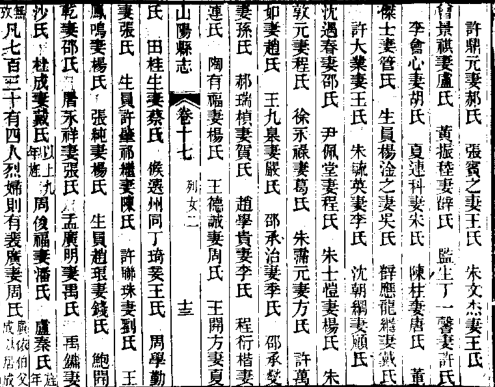 許鼎元妻郝氏 張賓之妻王氏 朱文杰妻王氏
景祺妻盧氏 黃振楏妻薛氏 監生丁一馨妻許氏
李會心妻胡氏 夏連科妻宋氏 陳柱妻唐氏 董
傑士妻管氏 生員楊淦之妻吳氏 薛應龍繼妻戴氏
許大業妻王氏 朱毓英妻李氏 沈朝綱妻顧氏
沈遇春妻邵氏 尹佩堂妻程氏 朱士愷妻楊氏 朱
敦元妻程氏 徐永祿妻葛氏 朱霱元妻方氏 許萬
如妻趙氏 王九臯妻嚴氏 邵承治妻季氏 邵承燮
妻孫氏 郝瑞楨妻賀氏 趙學貴妻李氏 程衍楷妻
連氏 陶有福妻楊氏 王德誠妻周氏 王開方妻夏
山陽縣志 卷十七 列女二 十三
氏 田桂生妻蔡氏 候選州同丁琦妾王氏 周學勤
妻張氏 生員許肇祁繼妻陳氏 許聯珠妻劉氏 王
鳳鳴妻楊氏 張純妻楊氏 生員趙珢妻錢氏 鮑開
乾妻邵氏 唐永祥妻張氏 孟廣明妻禹氏 禹鱵妻
沙氏 杜成妻戴氏以上九年底 周俊福妻潘氏 盧秦氏年底
凡七百三十有四人烈婦則有裴廣妻周氏廣依伯父成以居成